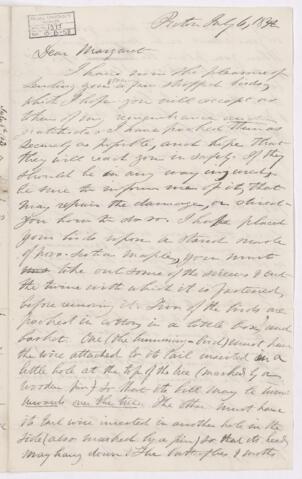 Dear Margaret
I have now the pleasure of
sending you a few stuffed birds,
which I hope you will accept as
token of my
gratitude. I have packed them as
securely as possible, and hope that
they will reach you in safety. If they
should be in any way injured,
be sure to inform me of it, that I
may repair the damage, or direct
you how to do so. I have placed
your birds upon a stand made
of maple, you must
take out some of the screws & cut
the twine with which it is fastened,
before removing it. Two of the birds are
packed in cotton, in a little box and
basket. One (the humming-bird) must have
the wire attached to its tail inserted in a
little hole at the top of the tree (marked by a
wooden pin) so that its bill may be turned
The other must have
its tail wire inserted in another hole in the
side (also marked by a pin) so that its head
may hang down. The butterflies & moths